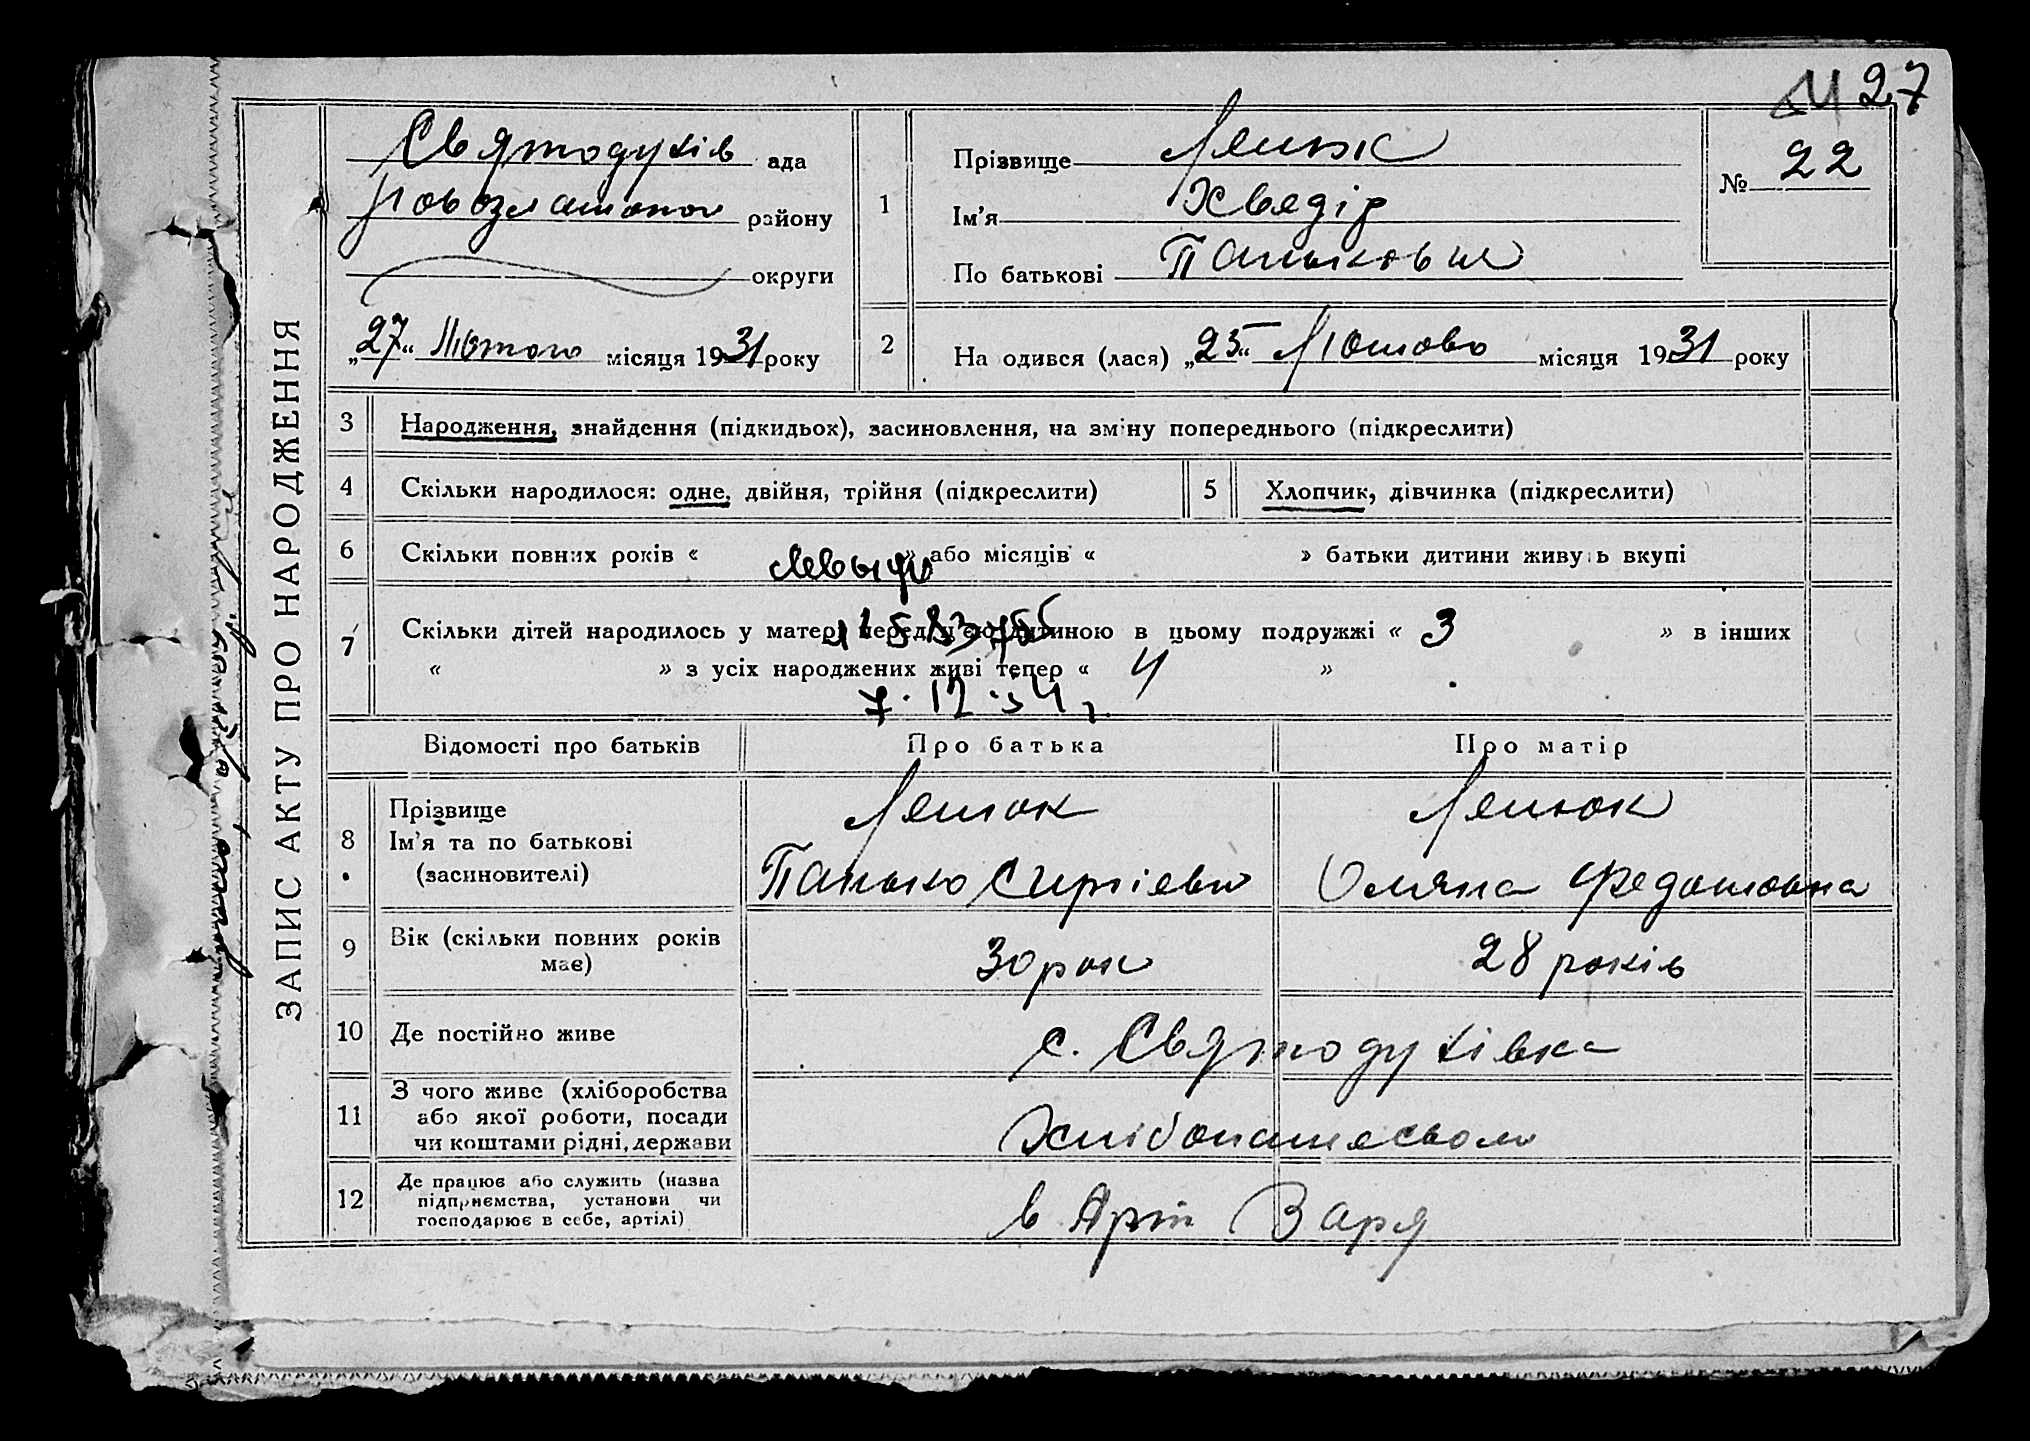 27
Святодухів ада
Новозлатопол району
округи
„27“ Лютого місяця 1931 року
1
Прізвище
Ім'я Хведір
По батькові Панькович
№ 22
2
На одився (лася) „25“ Лютово місяця 1931 року
ЗАПИС АКТУ ПРО НАРОДЖЕННЯ
3 Народження, знайдення (підкидьох), засиновлення, на зміну попереднього (підкреслити)
4 Скільки народилося: одне, двійня, трійня (підкреслити) 5 Хлопчик, дівчинка (підкреслити)
6 Скільки повних років « » або місяців « » батьки дитини живуть вкупі
7 Скільки дітей народилось у матері перед цією дитиною в цьому подружжі « 3 » в інших
« » з усіх народжених живі тепер « 4 »
7.12.54 г.
Відомості про батьків Про батька Про матір
8 Прізвище
Ім'я та по батькові
(засиновителі)
Панько Сиргіеви
Федотовна
9 Вік (скільки повних років
має)
30 рок 28 років
10 Де постійно живе с. Святодухівка
11 З чого живе (хліборобства
або якої роботи, посади
чи коштами рідні, держави
Хлібопашеством
12 Де працює або служить (назва
підприємства, установи чи
господарює в себе, артілі)
в Арт Заря